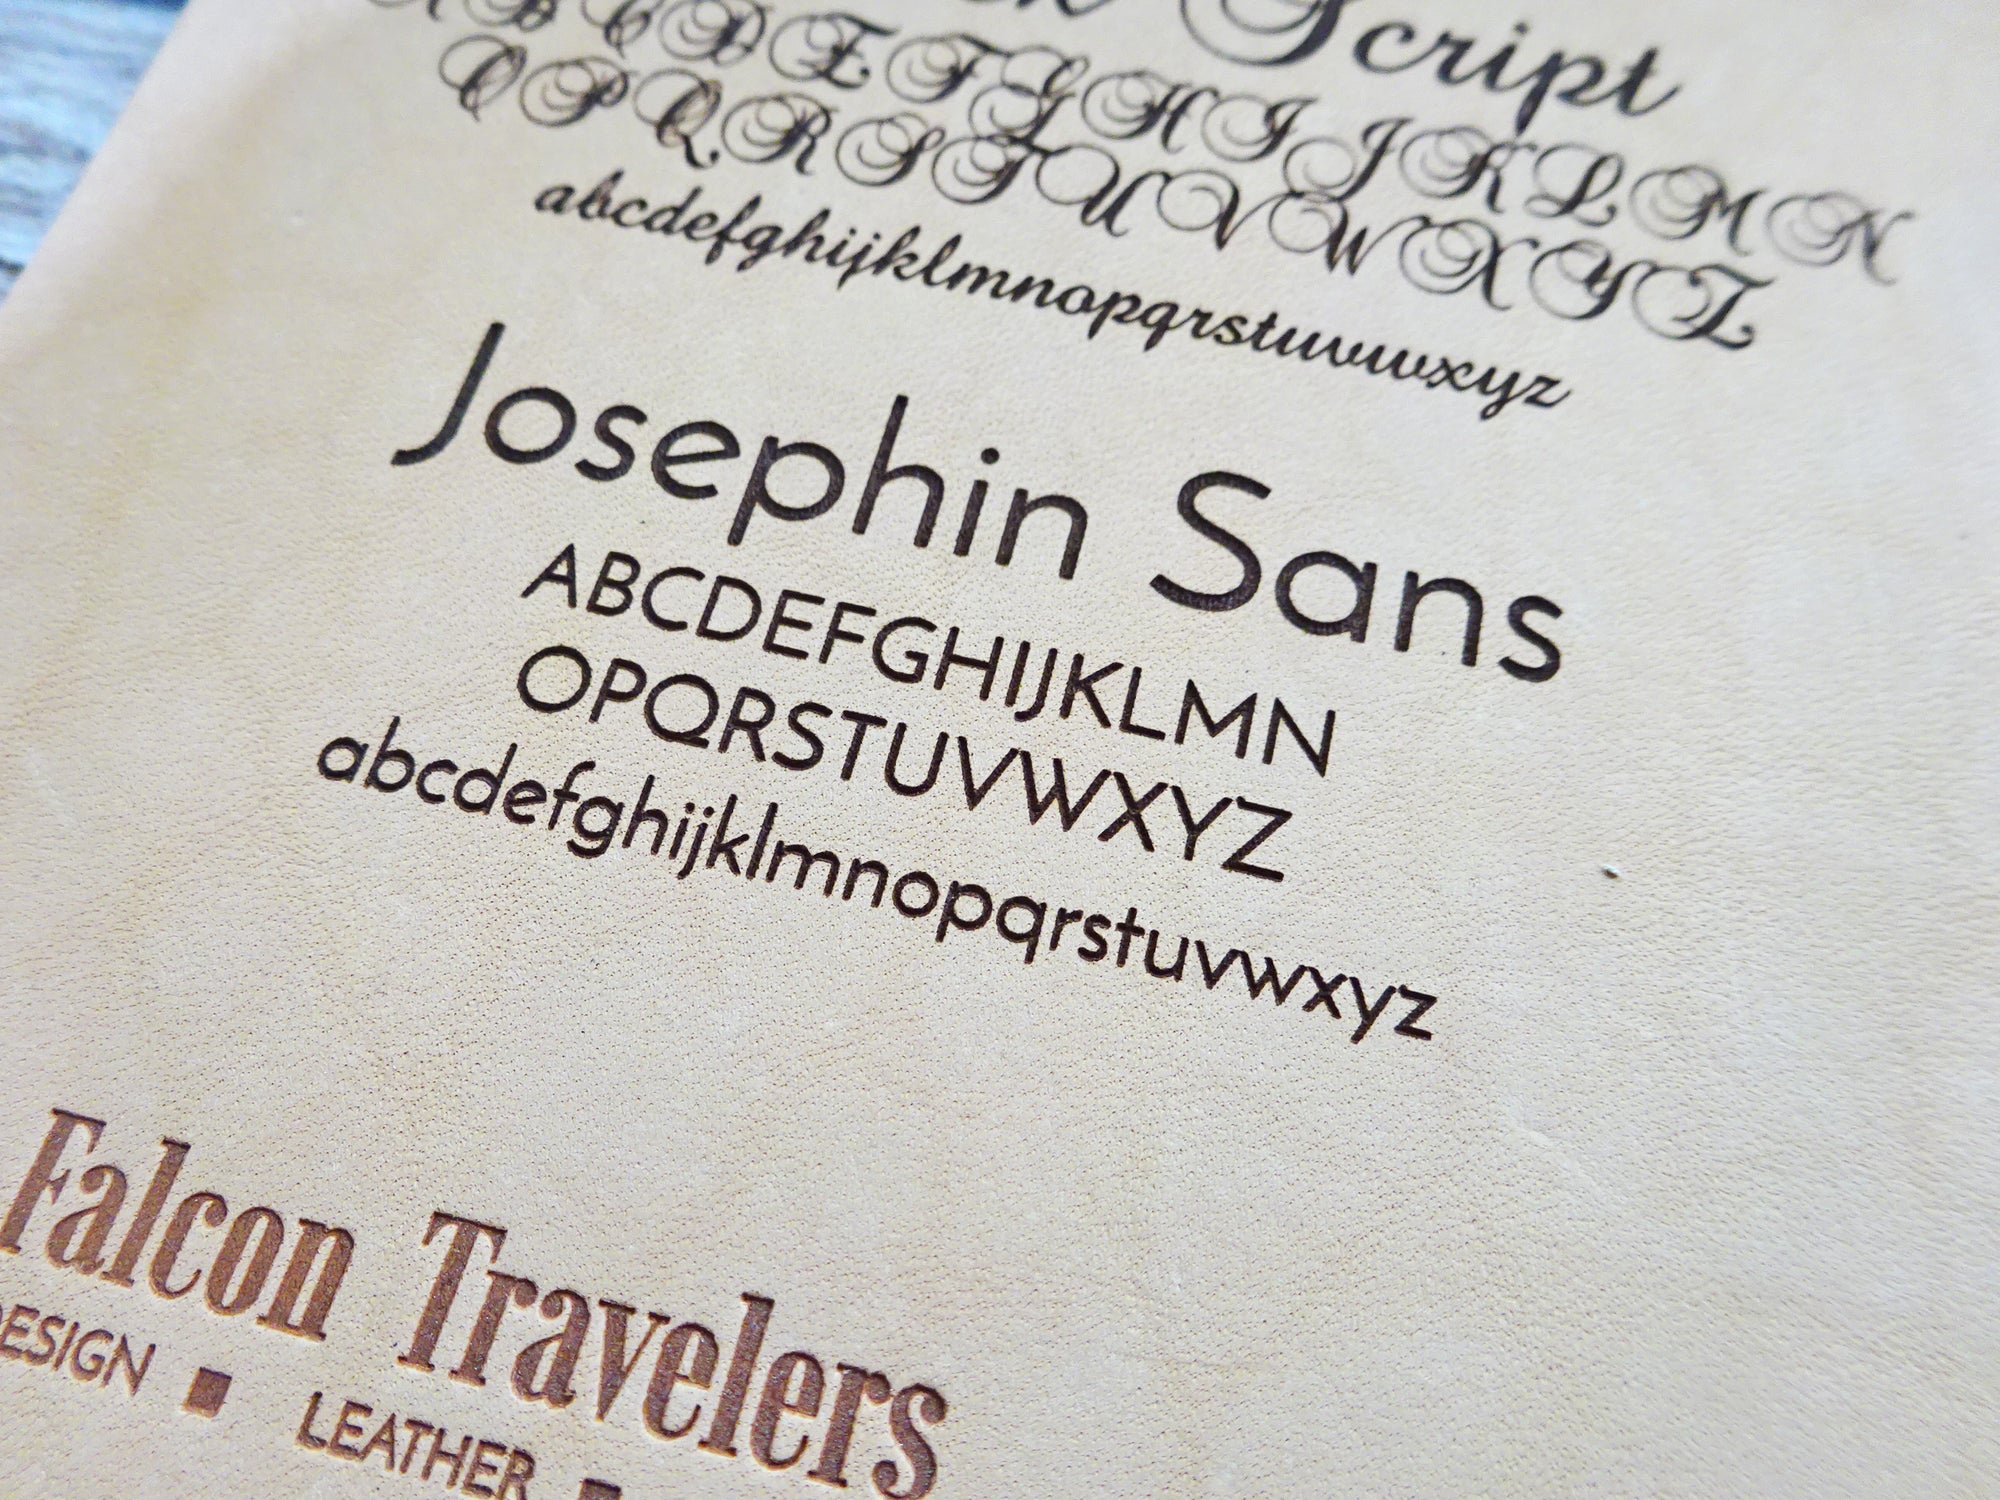 Script
ABCDEFGHIJKLMN
OPQRSTUVWXYZ
abcdefghijklmnopqrstuvwxyz
Josephin Sans
ABCDEFGHIJKLMN
OPQRSTUVWXYZ
abcdefghijklmnopqrstuvwxyz
Falcon Travelers
DESIGN ▪ LEATHER ▪